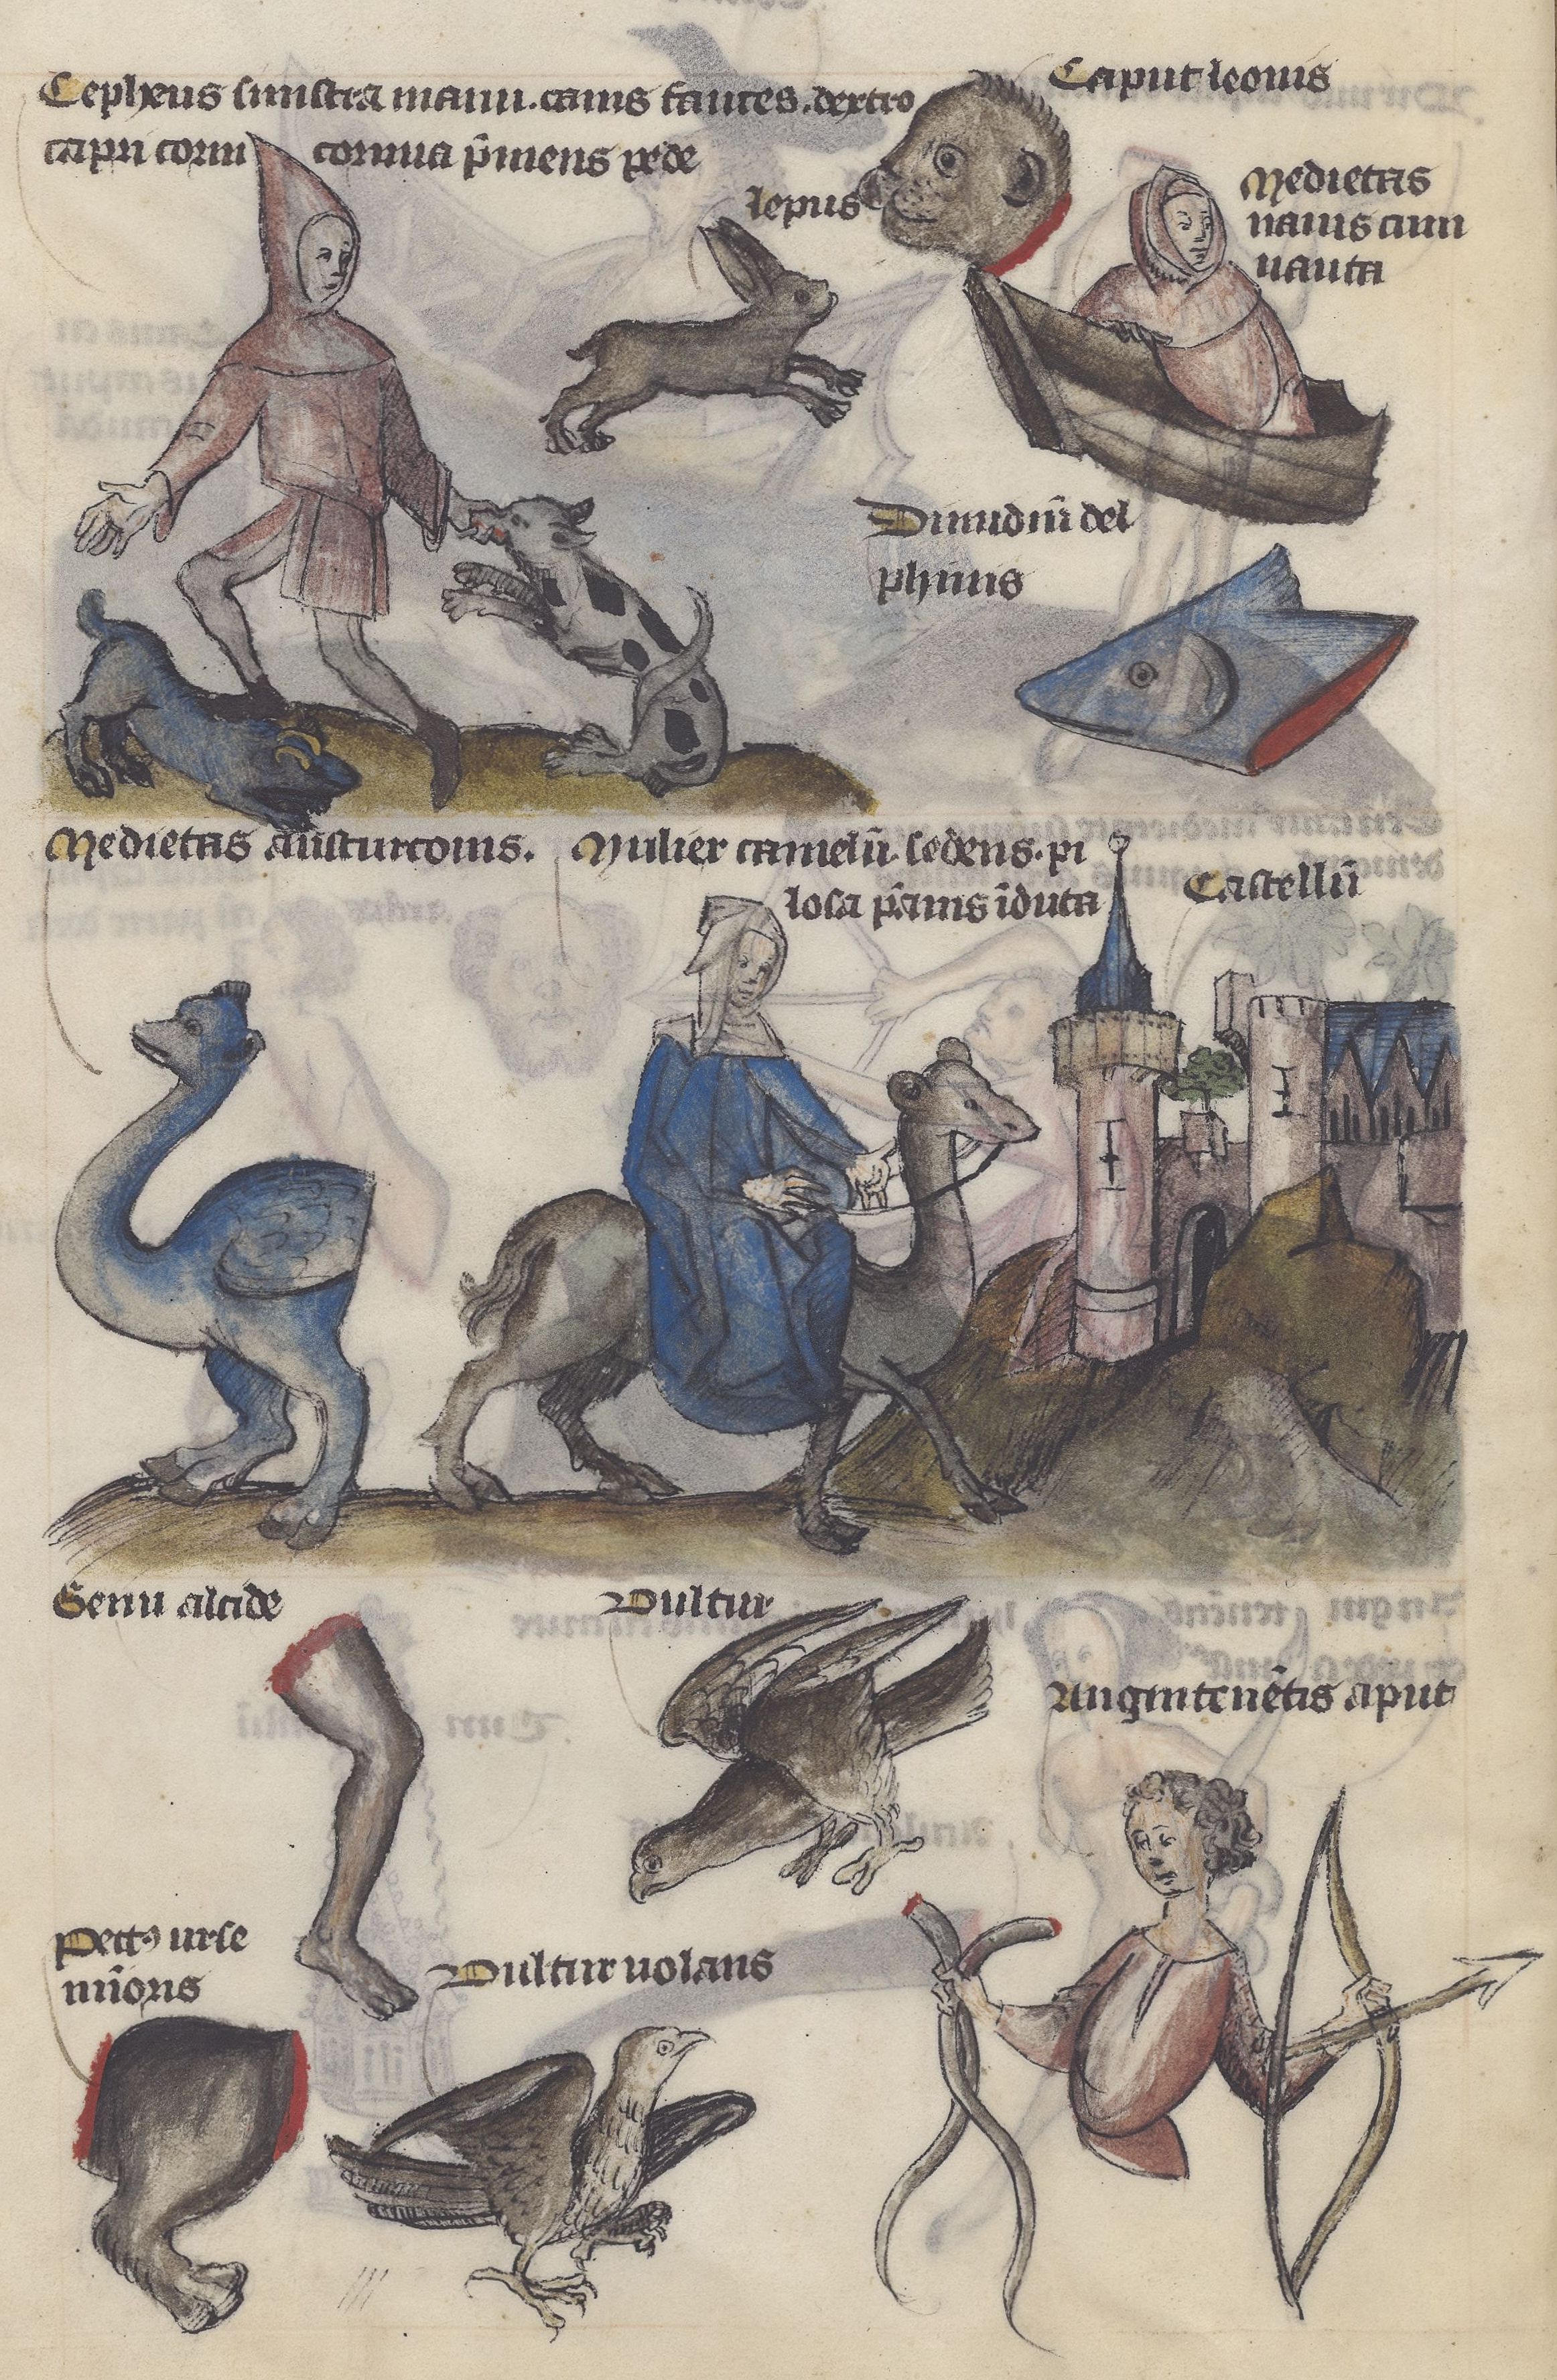 Cepheus sinistra manu. canis fauces. dextro
capri cornu cornua p̄mens pede
Caput leonis
lepus
Medietas
nauis cum
nauta
Dimidiū del
phinis
Medietas austurconis. Mulier camelū. sedens. pi
losa p̄anis īduta
Castellū
Genu alcide
Vultur
Angintenētis aput
Pectꝯ urse
mīoris
Vultur uolans